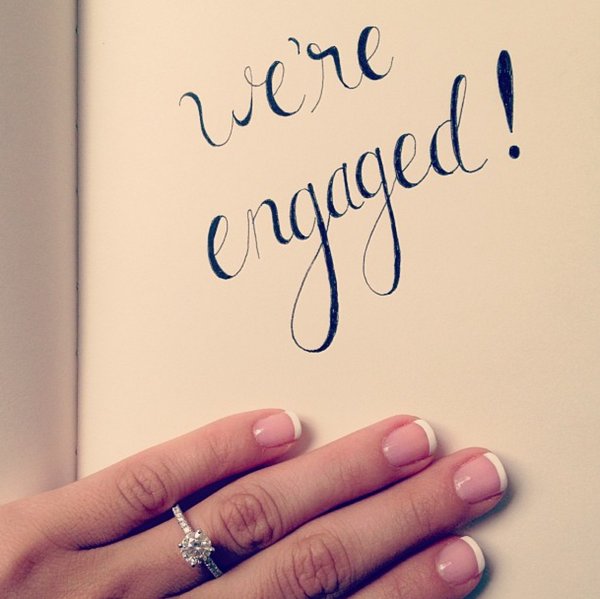 we're
engaged!